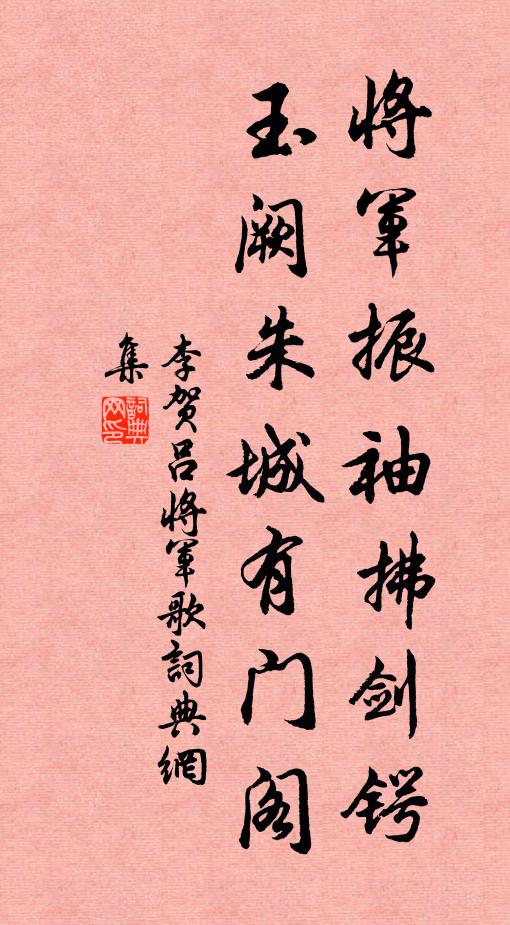 将军振袖拂剑锷
玉阙朱城有门阁
李贺吕将军歌词典網
集
詞典
网印